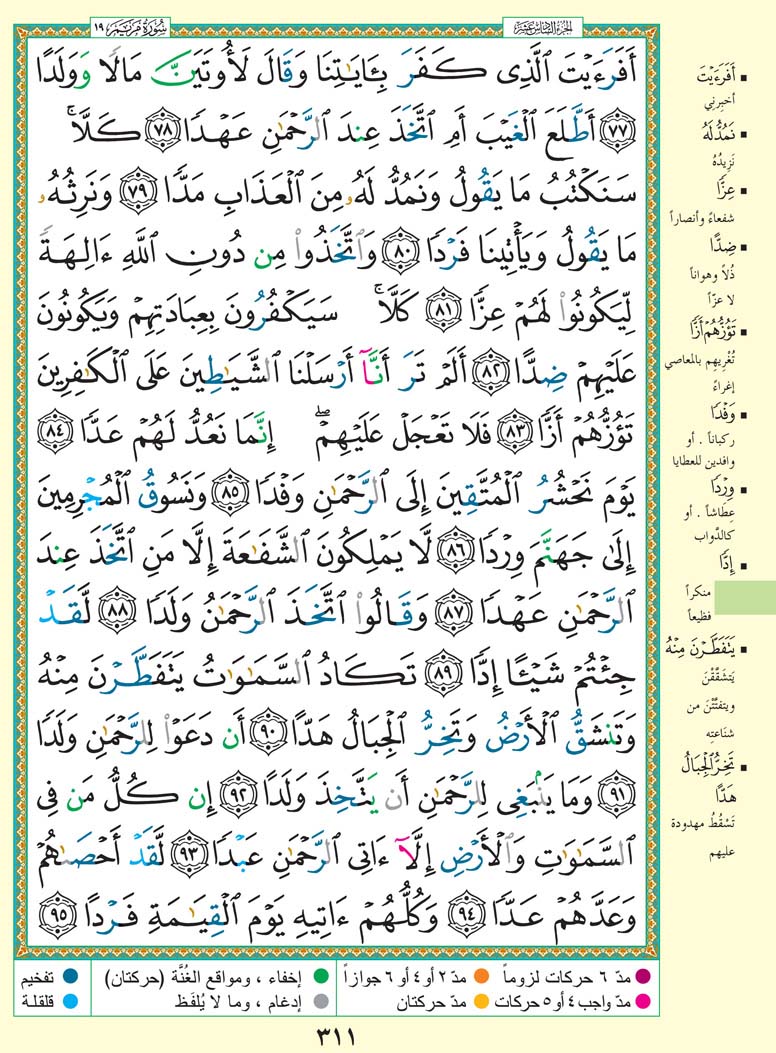 سُورَةُ مَرْيَمَ ١٩
الجزء السادس عشر
أَفَرَءَيْتَ ٱلَّذِى كَفَرَ بِـَٔايَـٰتِنَا وَقَالَ لَأُوتَيَنَّ مَالًا وَوَلَدًا
﴿٧٧﴾ أَطَّلَعَ ٱلْغَيْبَ أَمِ ٱتَّخَذَ عِندَ ٱلرَّحْمَـٰنِ عَهْدًا ﴿٧٨﴾ كَلَّا ۚ
سَنَكْتُبُ مَا يَقُولُ وَنَمُدُّ لَهُۥ مِنَ ٱلْعَذَابِ مَدًّا ﴿٧٩﴾ وَنَرِثُهُۥ
مَا يَقُولُ وَيَأْتِينَا فَرْدًا ﴿٨٠﴾ وَٱتَّخَذُوا۟ مِن دُونِ ٱللَّهِ ءَالِهَةً
لِّيَكُونُوا۟ لَهُمْ عِزًّا ﴿٨١﴾ كَلَّا ۚ سَيَكْفُرُونَ بِعِبَادَتِهِمْ وَيَكُونُونَ
عَلَيْهِمْ ضِدًّا ﴿٨٢﴾ أَلَمْ تَرَ أَنَّآ أَرْسَلْنَا ٱلشَّيَـٰطِينَ عَلَى ٱلْكَـٰفِرِينَ
تَؤُزُّهُمْ أَزًّا ﴿٨٣﴾ فَلَا تَعْجَلْ عَلَيْهِمْ ۖ إِنَّمَا نَعُدُّ لَهُمْ عَدًّا ﴿٨٤﴾
يَوْمَ نَحْشُرُ ٱلْمُتَّقِينَ إِلَى ٱلرَّحْمَـٰنِ وَفْدًا ﴿٨٥﴾ وَنَسُوقُ ٱلْمُجْرِمِينَ
إِلَىٰ جَهَنَّمَ وِرْدًا ﴿٨٦﴾ لَّا يَمْلِكُونَ ٱلشَّفَـٰعَةَ إِلَّا مَنِ ٱتَّخَذَ عِندَ
ٱلرَّحْمَـٰنِ عَهْدًا ﴿٨٧﴾ وَقَالُوا۟ ٱتَّخَذَ ٱلرَّحْمَـٰنُ وَلَدًا ﴿٨٨﴾ لَّقَدْ
جِئْتُمْ شَيْـًٔا إِدًّا ﴿٨٩﴾ تَكَادُ ٱلسَّمَـٰوَٰتُ يَتَفَطَّرْنَ مِنْهُ
وَتَنشَقُّ ٱلْأَرْضُ وَتَخِرُّ ٱلْجِبَالُ هَدًّا ﴿٩٠﴾ أَن دَعَوْا۟ لِلرَّحْمَـٰنِ وَلَدًا
﴿٩١﴾ وَمَا يَنۢبَغِى لِلرَّحْمَـٰنِ أَن يَتَّخِذَ وَلَدًا ﴿٩٢﴾ إِن كُلُّ مَن فِى
ٱلسَّمَـٰوَٰتِ وَٱلْأَرْضِ إِلَّآ ءَاتِى ٱلرَّحْمَـٰنِ عَبْدًا ﴿٩٣﴾ لَّقَدْ أَحْصَىٰهُمْ
وَعَدَّهُمْ عَدًّا ﴿٩٤﴾ وَكُلُّهُمْ ءَاتِيهِ يَوْمَ ٱلْقِيَـٰمَةِ فَرْدًا ﴿٩٥﴾
▪ أَفَرَءَيْتَ
أخبرني
▪ نَمُدُّ لَهُ
نَزِيدُهُ
▪ عِزًّا
شفعاءً وأنصاراً
▪ ضِدًّا
ذُلاًّ وهواناً
لا عزّاً
▪ تَؤُزُّهُمْ أَزًّا
تُغْرِيهم بالمعاصي
إغراءً
▪ وَفْدًا
ركباناً . أو
وافدين للعطايا
▪ وِرْدًا
عِطَاشاً . أو
كالدَّواب
▪ إِدًّا
منكراً
فظيعاً
▪ يَتَفَطَّرْنَ مِنْهُ
يَتشَقَّقْنَ
ويتفتَّتْنَ من
شنَاعتِه
▪ تَخِرُّ ٱلْجِبَالُ
هَدًّا
تَسْقُطُ مهدودة
عليهم
● مدّ ٦ حركات لزوماً ● مدّ ٢ أو ٤ أو ٦ جوازاً ● إخفاء ، ومواقع الغُنَّة (حركتان) ● تفخيم
● مدّ واجب ٤ أو ٥ حركات ● مدّ حركتان ● إدغام ، وما لا يُلفَظ ● قلقلة
٣١١